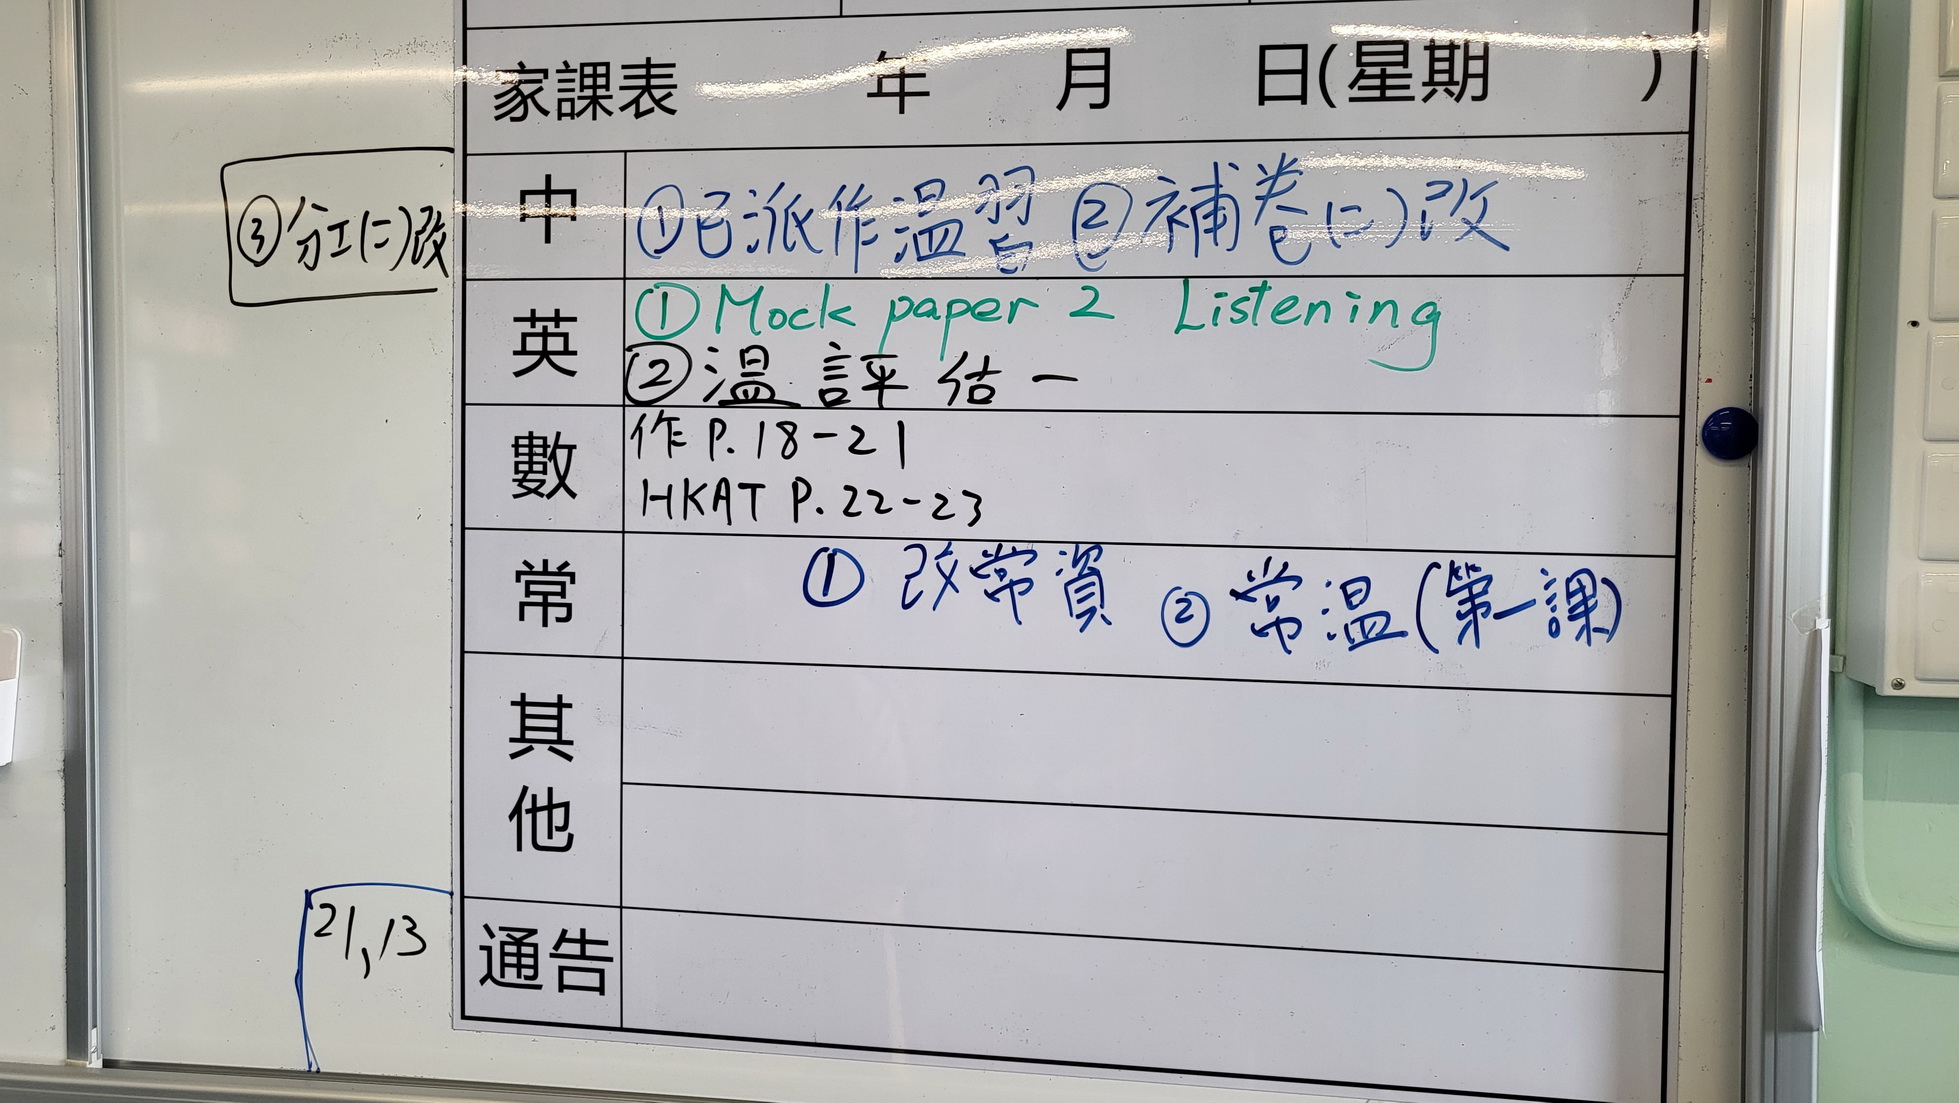 家課表 年 月 日(星期 )
③分工(二)改
中 ①已派作温習 ②補卷(二)改
英 ①Mock paper 2 Listening
②温評估一
數 作 P.18-21
HKAT P.22-23
常 ① 改常資 ② 常温(第一課)
其他
21,13
通告